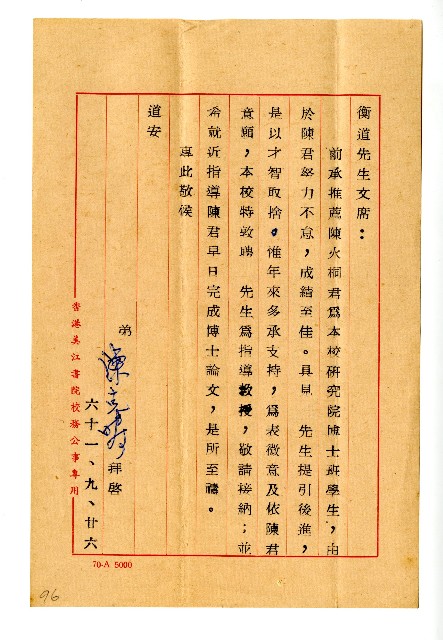 衡道先生文席：
前承推薦陳火桐君為本校研究院博士班學生，由
於陳君努力不怠，成績至佳。具見　先生提引後進，
是以才智取捨。惟年來多承支持，為表微意及依陳君
意願，本校特敦聘　先生為指導教授，敬請接納；並
希就近指導陳君早日完成博士論文，是所至禱。
專此敬候
道安
弟
拜啓
六十一、九、廿六
香港吳江書院校務公事專用
70-A 5000
96